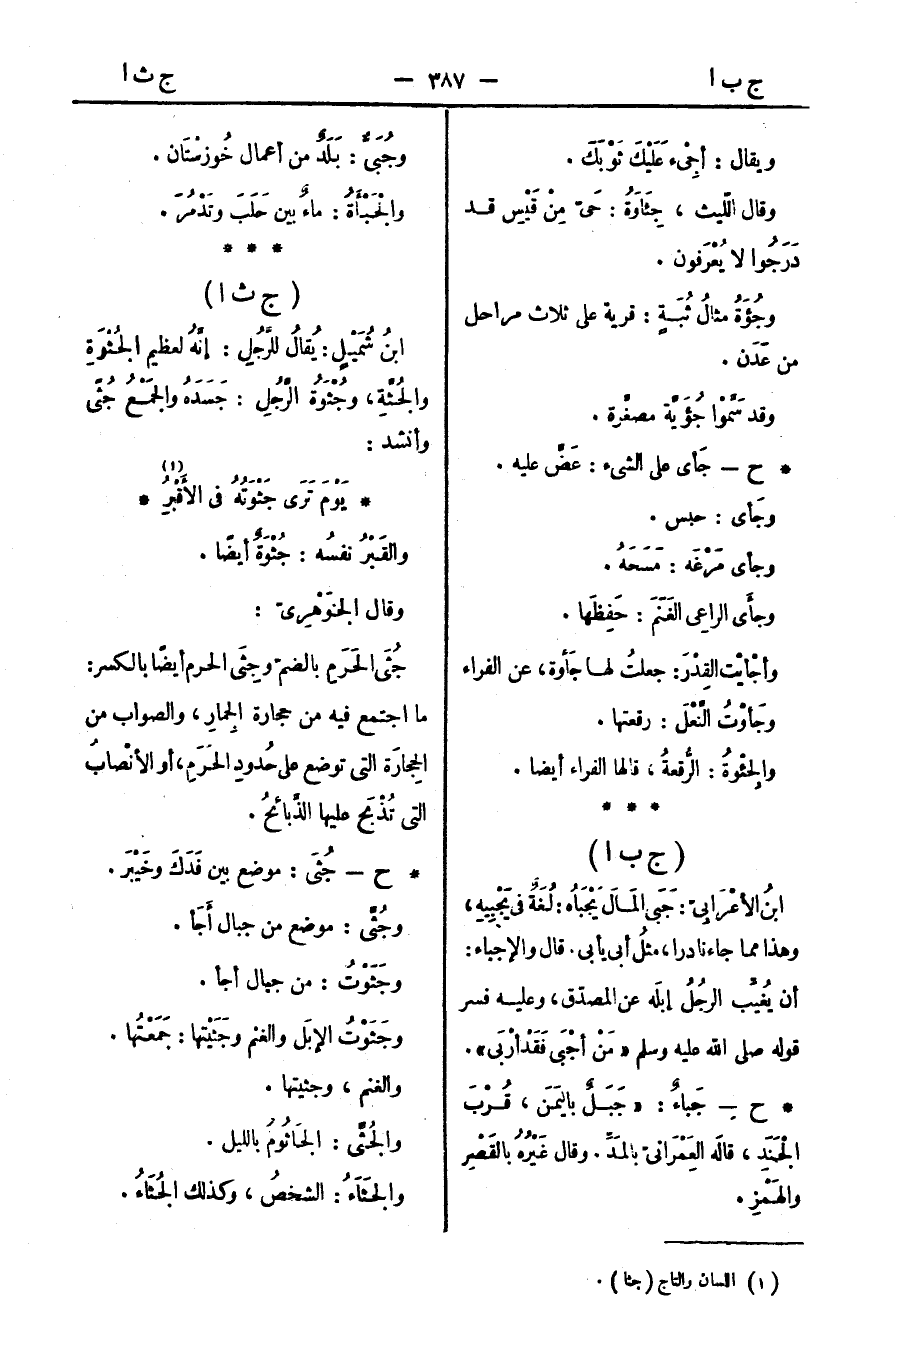 ج ب ا
— ٣٨٧ —
ج ث ا
ويقال : أجْىء عَلَيْكَ ثَوْبَكَ .
وقال اللّيث ، جِئَاوَةُ : حَىّ مِنْ قَيْسٍ قـد
دَرَجُوا لا يُعْرَفون .
وجُؤَةُ مثالُ ثُبَةٍ : قرية على ثلاث مراحل
من عَدَن .
وقد سَمَّوْا جُؤَيَّة مصغّرة .
* ح — جَأى على الشىء : عَضَّ عليه .
وجَأى : حبس .
وجأى مَرْغَه : مَسَحَهُ .
وجأَى الراعِى الغَنَمَ : حَفِظَها .
وأجْأيْت القِدْرَ : جعلتُ لها جَأوة ، عن الفراء
وجَأوْتُ النَّعْلَ : رقعتها .
والجِئْوةُ : الرُّقعةُ ، قالها الفراء أيضا .
* * *
( ج ب ا )
ابنُ الأعْرَابِىّ : جَبَى المـالَ يَجْبَاه : لُغَةٌ فى يَجْبِيهِ ،
وهذا مما جاء نادرا ، مثلُ أبى يأبى . قال والإجباء :
أن يُغَيِّب الرجُلُ إبلَه عن المصدّق ، وعليـه فسر
قوله صلى الله عليه وسلم « مَنْ أجْبَى فَقَدْ أرْبَى» .
* ح – جَباءٌ : « جَبَـلٌ باليَمَن ، قُـرْبَ
الجَنَدِ ، قاله العِمْرَانىّ بالمَدِّ . وقال غَيْرُهُ بالقَصْرِ
والهَمْزِ .
وجُبَّى : بَلَدٌ من أعمال خُوزِسْتان .
والجَبْأَةُ : ماءٌ بين حَلَبَ وتَدْمُرَ .
* * *
( ج ث ا )
ابنُ شُمَيْلٍ : يُقالُ للرَّجُلِ : إنَّهُ لعظيم الجُثْوَةِ
والجُثّةِ ، وجُثْوَةُ الرَّجُلِ : جَسَدَهُ والجَمْعُ جُثًى
وأنشد :
* يَوْمَ تَرَى جَثْوَتَهُ فى الأَقْبُرِ (١) *
والقَبْرُ نفسُه : جُثْوَةٌ أيضًا .
وقال الجَوْهَرِىّ :
جُثَى الحَرَمِ بالضم وجِثَى الحرم أيضًا بالكسر :
ما اجتمع فيه من حجارة الجِمارِ ، والصواب من
الحِجارَة التى توضع على حُدودِ الحَرَمِ ، أو الأنْصابُ
التى تُذْبَحُ عليها الذَّبائحُ .
* ح — جُثَى : موضع بين فَدَكَ وخَيْبَرَ .
وجُثَّى : موضع من جبال أَجَأ .
وجَثَوْتُ : من جبال أجأ .
وجَثَوْتُ الإبَل والغنم وجَثَيْتها : جَمَعْتُها .
والغنم ، وجثيتها .
والجُثَّى : الجَاثُومُ بالليل .
والجَثَاءُ : الشخصُ ، وكذلك الجُثَاءُ .
(١) اللسان والتاج (جثا) .